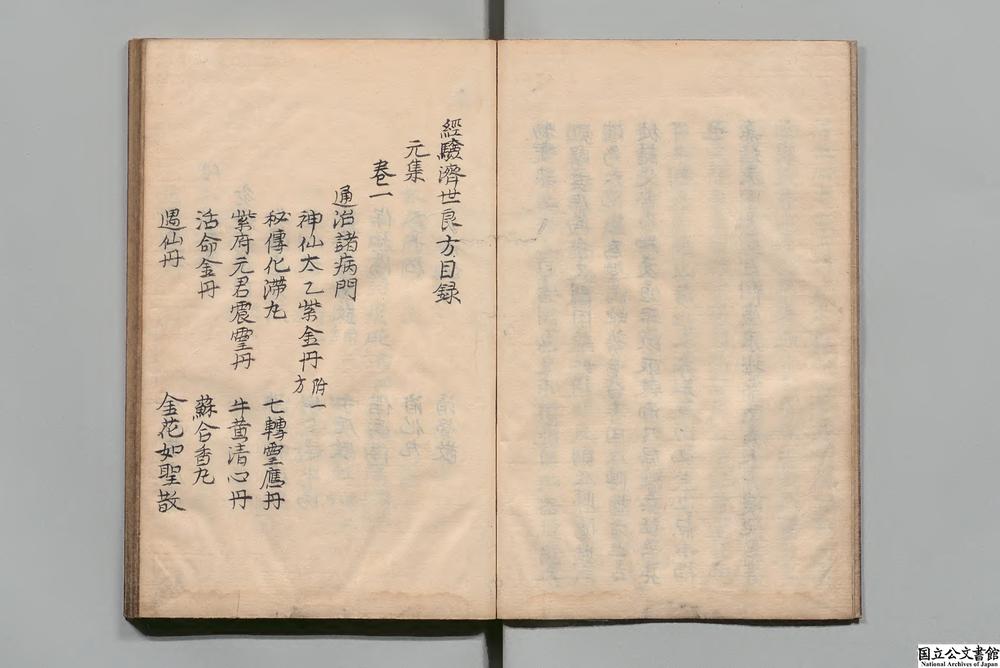 經驗濟世良方目録
元集
卷一
通治諸病門
神仙太乙紫金丹 附一方
秘傳化滯丸 七轉霊應丹
紫府元君震霊丹 牛黄清心丹
活命金丹 蘇合香丸
遇仙丹 金花如聖散
国立公文書館
National Archives of Japan